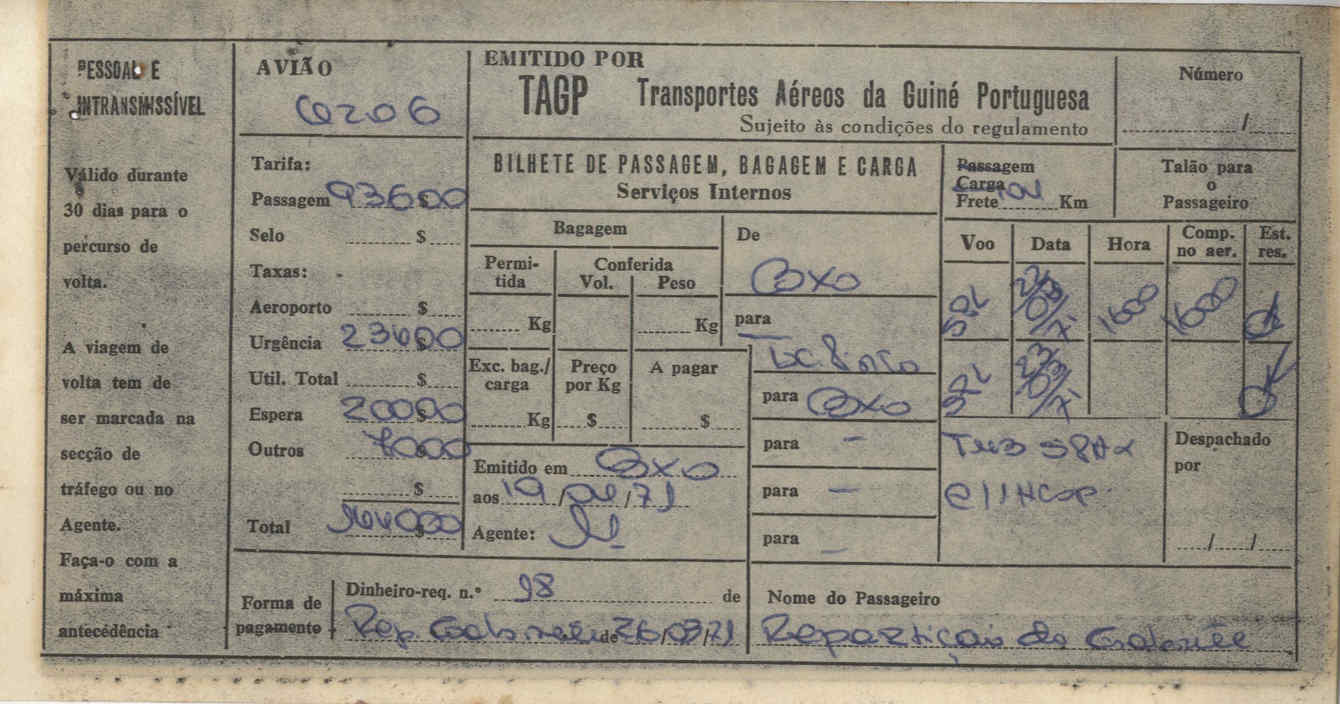 PESSOAL E
INTRANSMISSÍVEL
Válido durante
30 dias para o
percurso de
volta.
A viagem de
volta tem de
ser marcada na
secção de
tráfego ou no
Agente.
Faça-o com a
máxima
antecedência
AVIÃO
Tarifa:
Passagem 93600
Selo $
Taxas:
Aeroporto $
Urgência
Util. Total $
Espera 20000
Outros
$
Total
EMITIDO POR
TAGP Transportes Aéreos da Guiné Portuguesa
Sujeito às condições do regulamento
BILHETE DE PASSAGEM, BAGAGEM E CARGA
Serviços Internos
Bagagem
Permi-
tida
Conferida
Vol. Peso
Kg Kg
Exc. bag./
carga
Preço
por Kg
A pagar
Kg $ $
Emitido em Bxo
aos 19/ /71
Agente:
De
Bxo
para
para Bxo
para -
para -
para -
Número
/
Passagem
Carga
Frete Km
Talão para
o
Passageiro
Voo Data Hora Comp. no aer. Est. res.
SPL 23/03/71 1600 1600
SPL 23/03/71
Despachado
por
/ /
Forma de
pagamento
Dinheiro-req. n.º 98 de
Rep. Gabinete de 26/03/71
Nome do Passageiro
Repartição do Gabinete